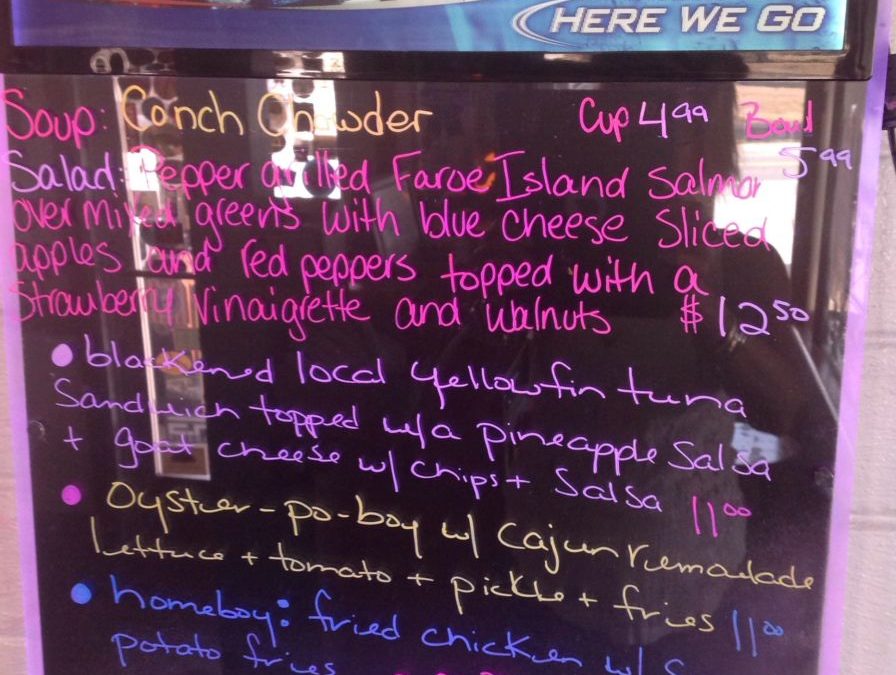 HERE WE GO
Soup: Conch Chowder Cup 4.99 Bowl 5.99
Salad: Pepper grilled Faroe Island Salmon
over mixed greens with blue cheese Sliced
apples and red peppers topped with a
Strawberry Vinaigrette and walnuts $12.50
• blackened local yellowfin tuna
Sandwich topped w/a pineapple Salsa
+ goat cheese w/ chips + Salsa 11.00
• Oyster-po-boy w/ Cajun remoulade
lettuce + tomato + pickle + fries 11.00
• homeboy: fried chicken w/ S
potato fries